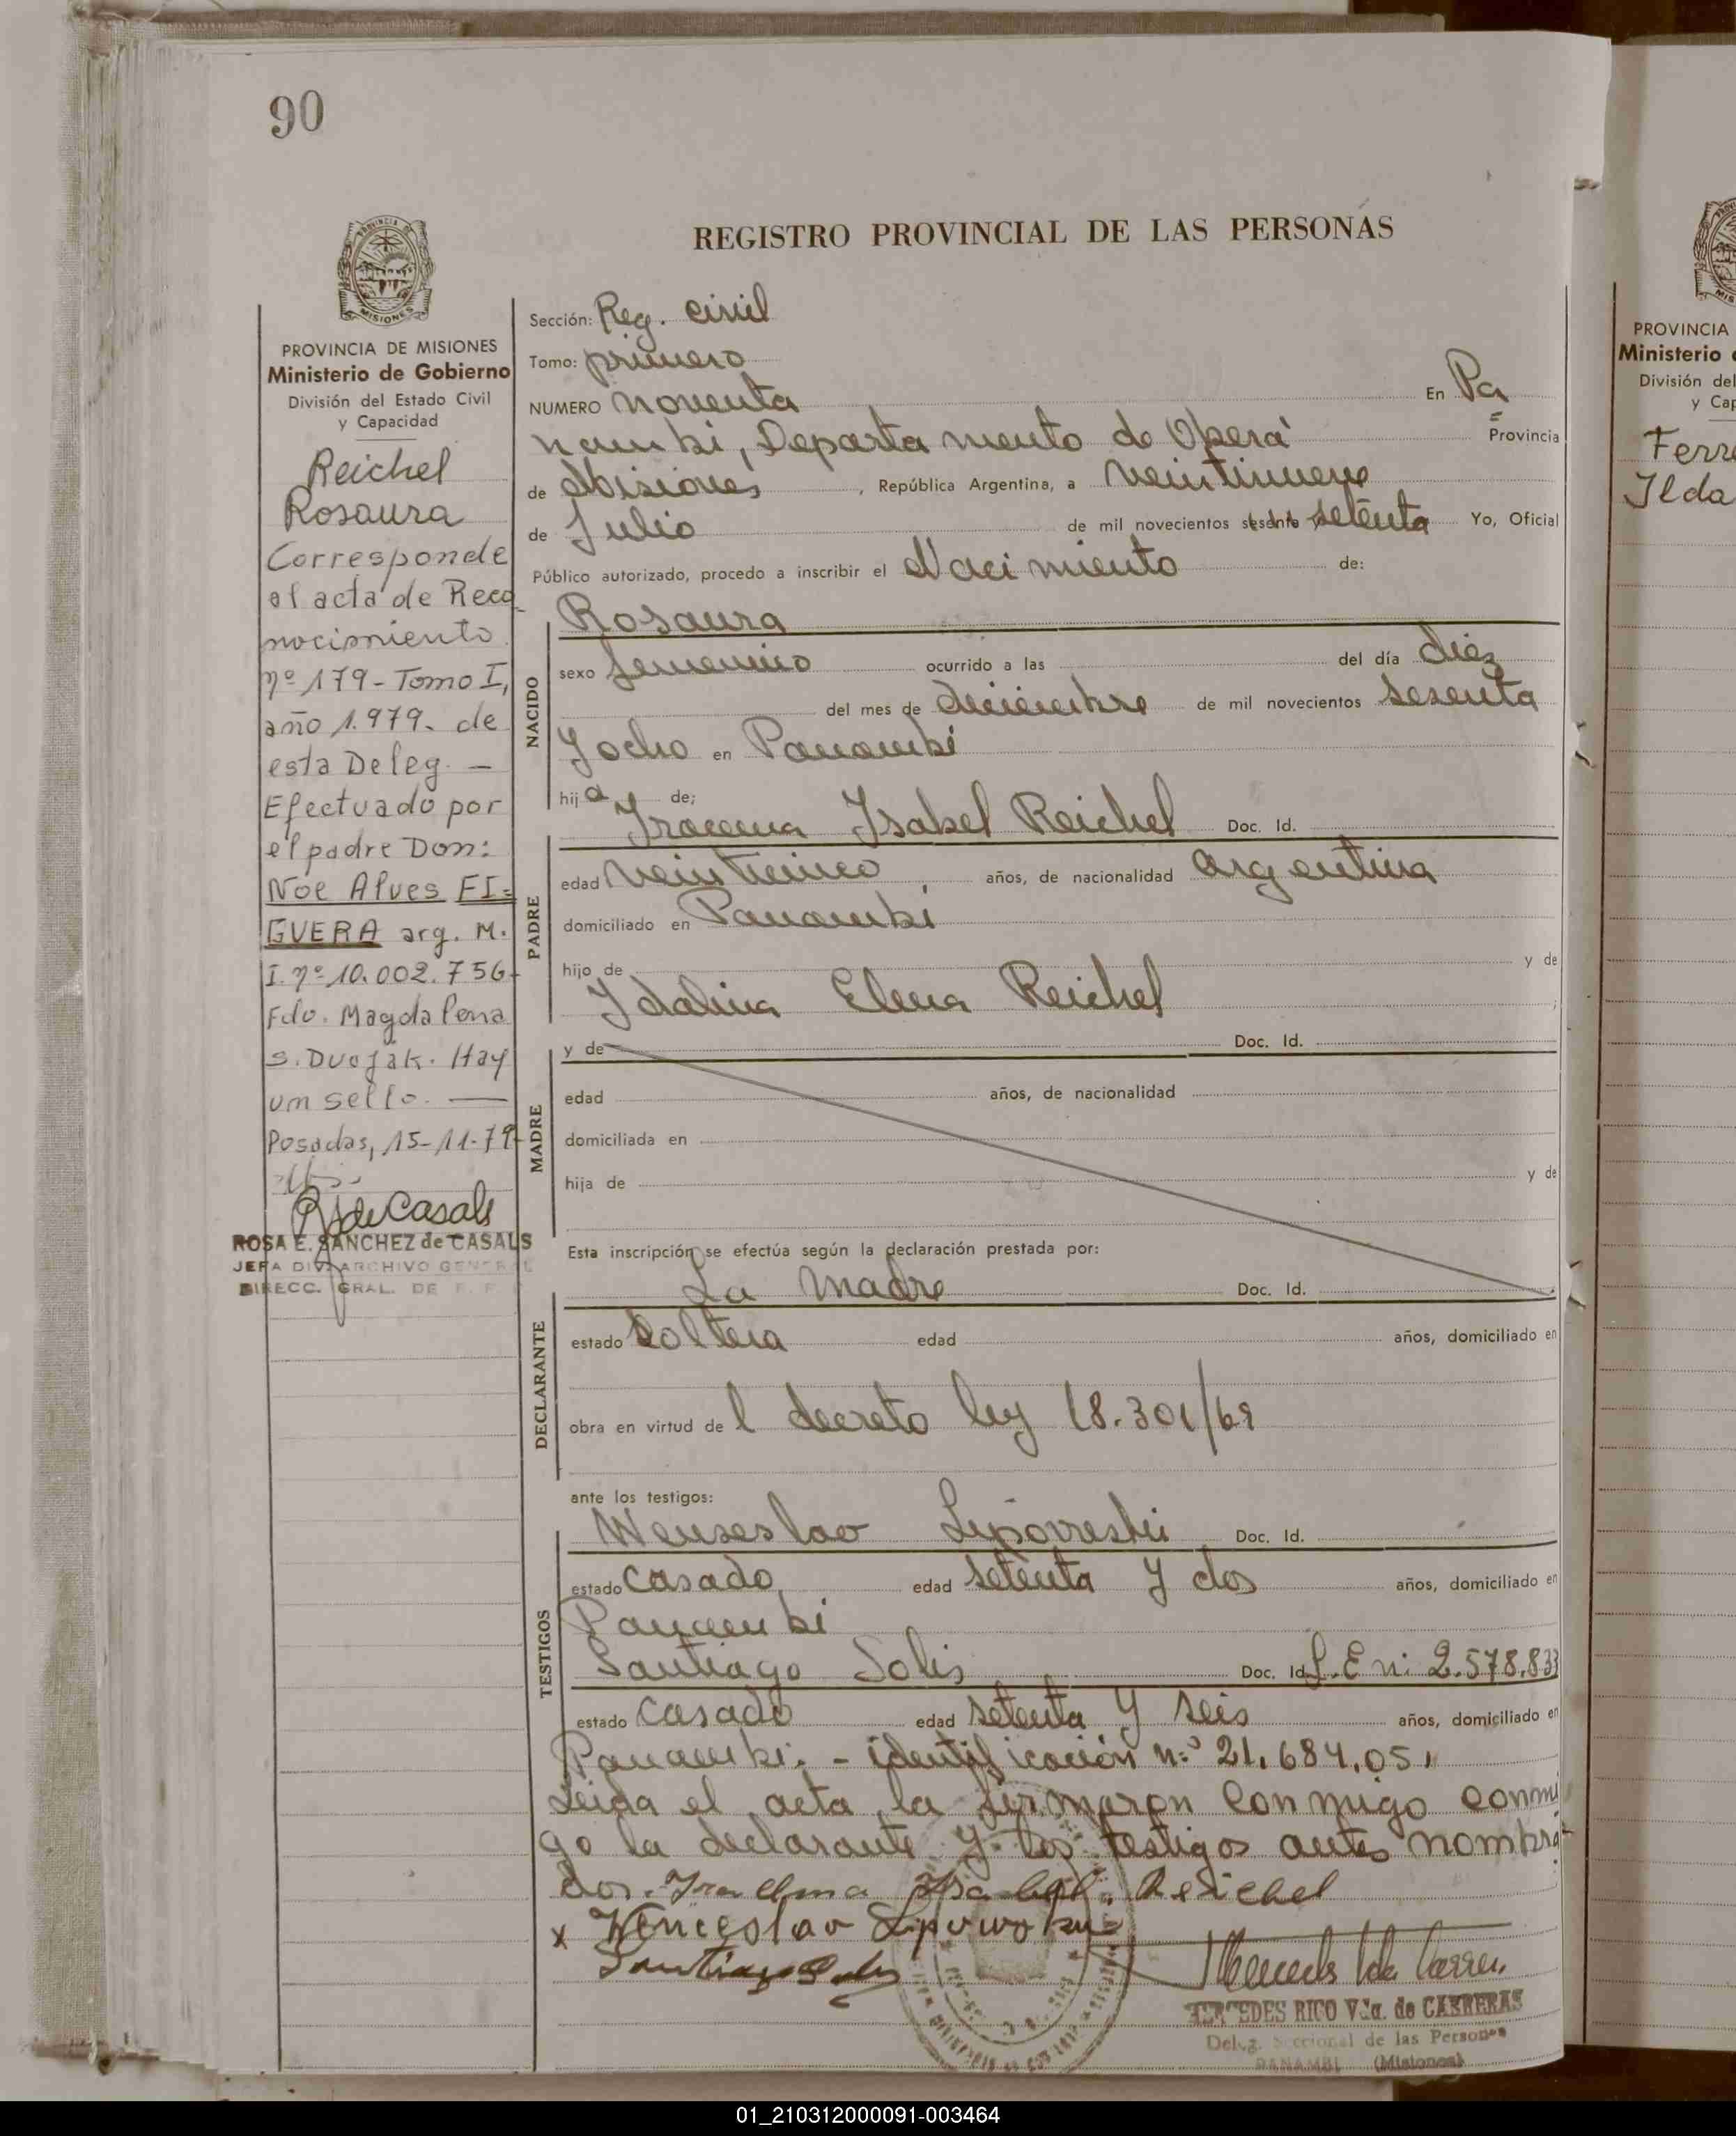 90
REGISTRO PROVINCIAL DE LAS PERSONAS
MISIONES
PROVINCIA DE MISIONES
Ministerio de Gobierno
División del Estado Civil
y Capacidad
Reichel
Rosaura
Corresponde
al acta de Reco
nocimiento
nº 179 - Tomo I,
año 1.979. de
esta Deleg. —
Efectuado por
el padre Don:
Noe Alves FI=
GUERA arg. M.
I. nº 10.002.756-
Fdo. Magdalena
S. Duojak. Hay
un sello. —
Posadas, 15-11-79
R S de Casals
ROSA E. SANCHEZ de CASALS
JEFA DIV. ARCHIVO GENERAL
DIRECC. GRAL. DE R. P.
Sección: Reg. civil
Tomo: primero
NUMERO noventa En Pa
nambi, Departamento de Oberá Provincia
de Misiones, República Argentina, a veintinueve
de Julio de mil novecientos sesenta setenta Yo, Oficial
Público autorizado, procedo a inscribir el Nacimiento de:
Rosaura
NACIDO
sexo femenino ocurrido a las del día diez
del mes de diciembre de mil novecientos sesenta
y ocho en Panambi
hija de;
Iracema Isabel Reichel Doc. Id.
PADRE
edad veinticinco años, de nacionalidad argentina
domiciliado en Panambi
hijo de y de
Idalina Elena Reichel ;
y de Doc. Id.
MADRE
edad años, de nacionalidad
domiciliada en
hija de y de
Esta inscripción se efectúa según la declaración prestada por:
La madre Doc. Id.
DECLARANTE
estado soltera edad años, domiciliado en
obra en virtud del decreto ley 18.301/69
ante los testigos:
Wenseslao Doc. Id.
TESTIGOS
estado casado edad setenta y dos años, domiciliado en
Panambi
Santiago Solis Doc. Id. L.E nº 2.578.833
estado casado edad setenta y seis años, domiciliado en
Panambi. - identificación nº 21.684.051
Leida el acta la firmaron conmigo conmi
go la declarante y los testigos antes nombra
dos. Iracema Isabel Reichel
x Wenceslao
Santiago Solis
MERCEDES RICO Vda. de CARRERAS
Deleg. Seccional de las Personas
PANAMBI (Misiones)
PROVINCIA
Ministerio
División del
y Cap
Ferre
Ilda
01_210312000091-003464